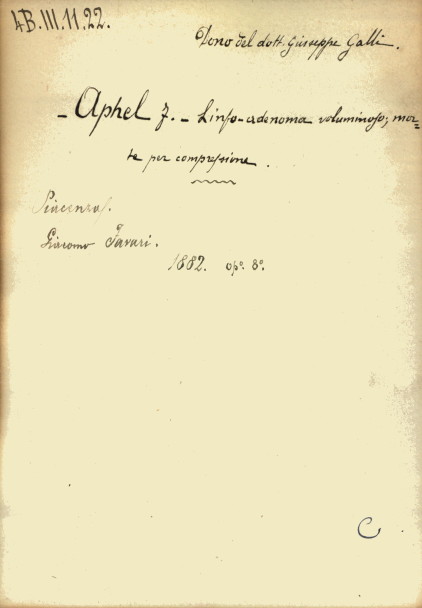 4B.III.11.22.
Dono del dott. Giuseppe Galli.
- Aphel F. - Linfo-adenoma voluminoso; mor=
te per compressione.
Piacenza.
Giacomo Favari.
1882. op.° 8.°
C